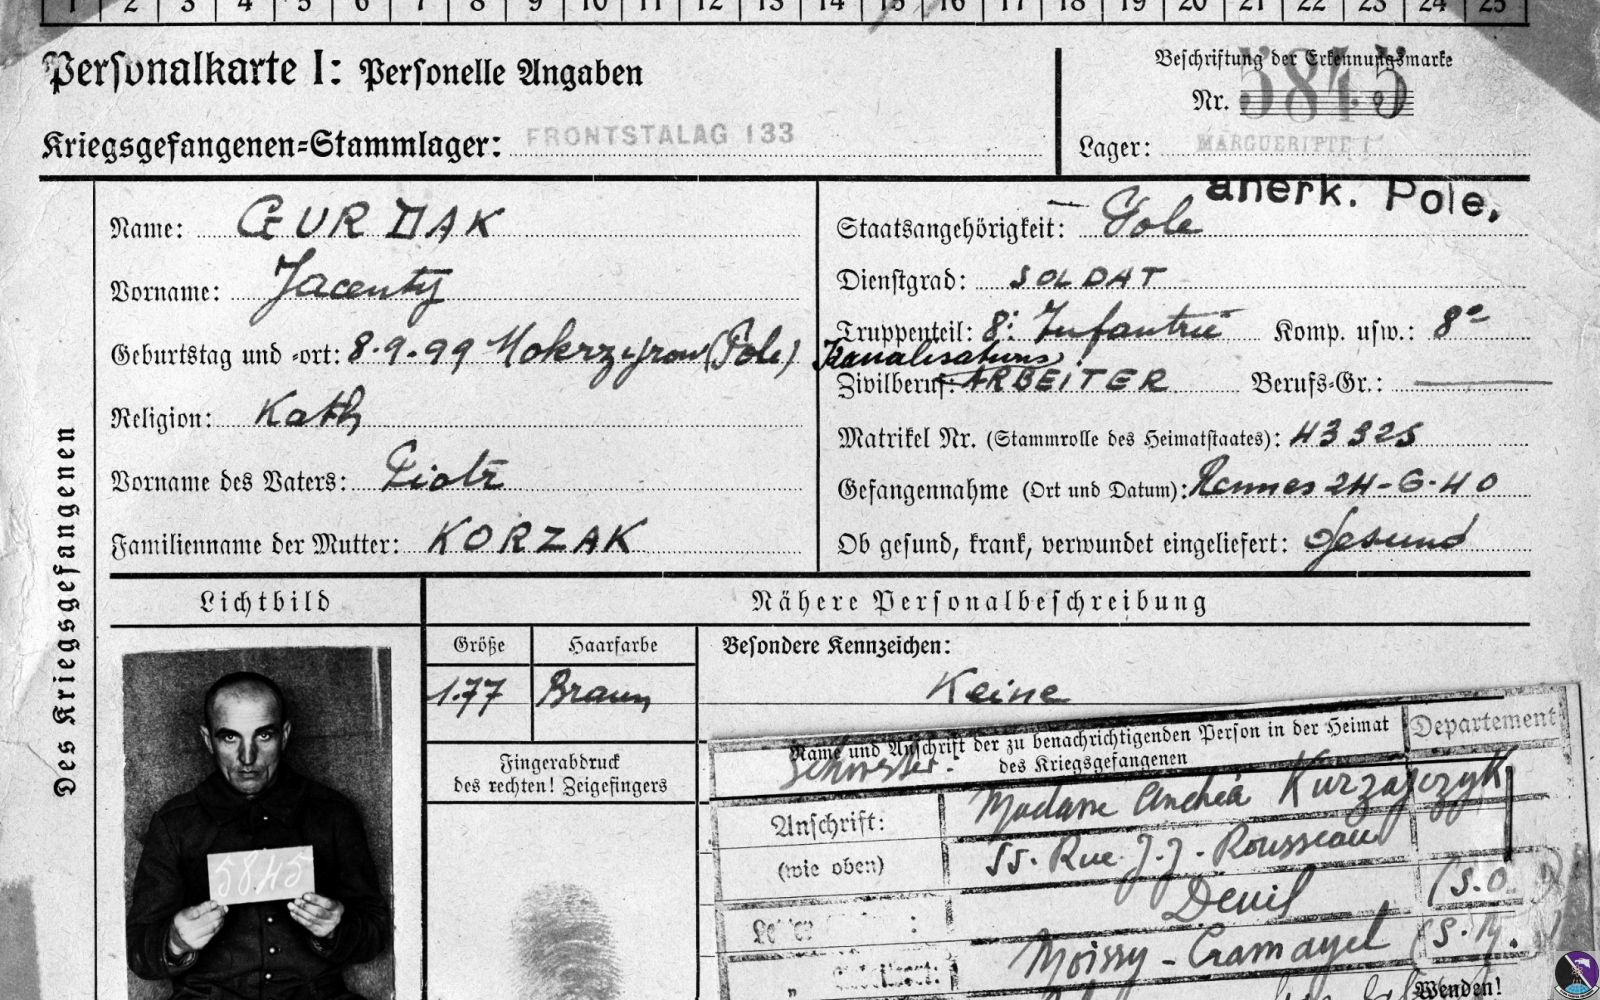 1 2 3 4 5 6 7 8 9 10 11 12 13 14 15 16 17 18 19 20 21 22 23 24 25
Personalkarte I: Personelle Angaben
Kriegsgefangenen-Stammlager: FRONTSTALAG 133
Beschriftung der Erkennungsmarke
Nr. 5845
Lager: MARGUERITTE
Des Kriegsgefangenen
Name: GURDAK
Vorname: Jacenty
Geburtstag und -ort: 8.9.99 Mokrzyszow (Pole)
Religion: Kath
Vorname des Vaters: Piotr
Familienname der Mutter: KORZAK
anerk. Pole.
Staatsangehörigkeit: Pole
Dienstgrad: SOLDAT
Truppenteil: 8: Infantrie Komp. usw.: 8e
Kanalisations
Zivilberuf: ARBEITER Berufs-Gr.:
Matrikel Nr. (Stammrolle des Heimatstaates): 43325
Gefangennahme (Ort und Datum): Rennes 24-6-40
Ob gesund, krank, verwundet eingeliefert: Gesund
Lichtbild
Nähere Personalbeschreibung
Größe Haarfarbe Besondere Kennzeichen:
1.77 Braun Keine
Fingerabdruck
des rechten! Zeigefingers
5845
Name und Anschrift der zu benachrichtigenden Person in der Heimat
des Kriegsgefangenen
Departement
Schwester:
Anschrift: Madame Kurzajczyk
(wie oben) 55. Rue J.J. Rousseau
Deuil (S.O.)
Moissy-Cramayel (S.M.)
Wenden!